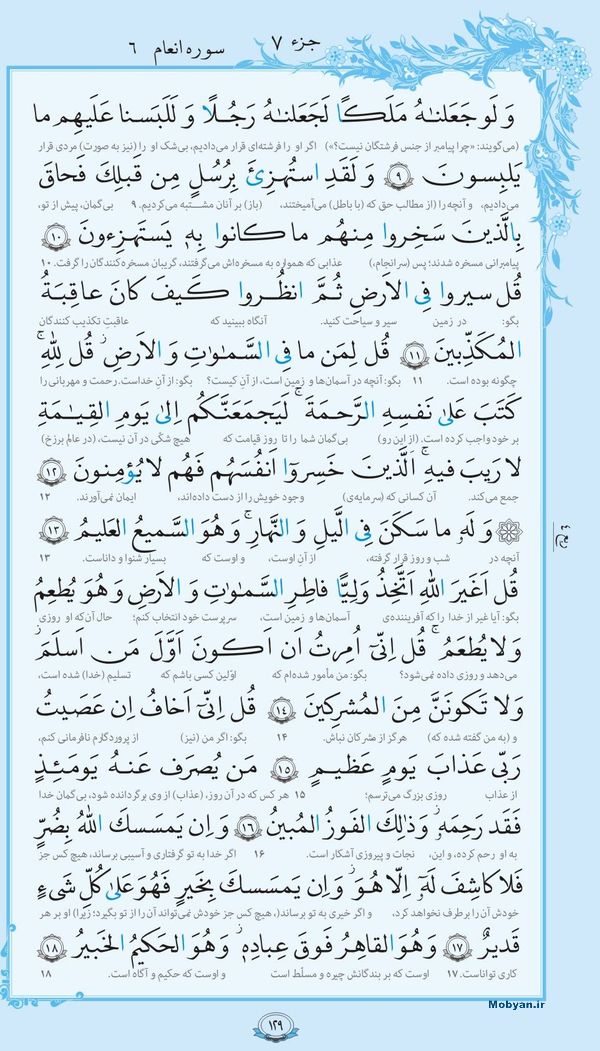 جزء ۷ سوره انعام ۶
وَ لَو جَعَلنٰهُ مَلَكًا لَجَعَلنٰهُ رَجُلًا وَ لَلَبَسنا عَلَيهِم ما
(می‌گویند: «چرا پیامبر از جنس فرشتگان نیست؟») اگر او را فرشته‌ای قرار می‌دادیم، بی‌شک او را (نیز به صورت) مردی قرار
يَلبِسونَ ۹ وَ لَقَدِ استُهزِئَ بِرُسُلٍ مِن قَبلِكَ فَحاقَ
می‌دادیم، و آنچه را (از مطالب حق که (با باطل) می‌آمیختند، (باز) بر آنان مشتبه می‌کردیم. ۹ بی‌گمان، پیش از تو،
بِالَّذينَ سَخِروا مِنهُم ما كانوا بِهٖ يَستَهزِءونَ ۱۰
پیامبرانی مسخره شدند؛ پس (سرانجام،) عذابی که همواره به مسخره‌اش می‌گرفتند، گریبان مسخره‌کنندگان را گرفت. ۱۰
قُل سيروا فِى الاَرضِ ثُمَّ انظُروا كَيفَ كانَ عاقِبَةُ
بگو: در زمین سیر و سیاحت کنید. آنگاه ببینید که عاقبتِ تکذیب کنندگان
المُكَذِّبينَ ۱۱ قُل لِمَن ما فِى السَّمٰوٰتِ وَ الاَرضِ ۖ قُل لِلّٰهِ ۚ
چگونه بوده است. ۱۱ بگو: آنچه در آسمان‌ها و زمین است، از آن کیست؟ بگو: از آن خداست. رحمت و مهربانی را
كَتَبَ عَلىٰ نَفسِهِ الرَّحمَةَ ۚ لَيَجمَعَنَّكُم اِلىٰ يَومِ القِيٰمَةِ
بر خود واجب کرده است. (از این رو) بی‌گمان شما را تا روز قیامت که هیچ شکّی در آن نیست، (در عالم برزخ)
لا رَيبَ فيهِ ۚ اَلَّذينَ خَسِروا اَنفُسَهُم فَهُم لا يُؤمِنونَ ۱۲
جمع می‌کند. آن کسانی که (سرمایه‌ی) وجود خویش را از دست داده‌اند، ایمان نمی‌آورند. ۱۲
وَ لَهٗ ما سَكَنَ فِى الَّيلِ وَ النَّهارِ ۚ وَ هُوَ السَّميعُ العَليمُ ۱۳
آنچه در شب و روز قرار گرفته، از آن اوست، و اوست که بسیار شنوا و داناست. ۱۳
قُل اَغَيرَ اللّٰهِ اَتَّخِذُ وَلِيًّا فاطِرِ السَّمٰوٰتِ وَ الاَرضِ وَ هُوَ يُطعِمُ
بگو: آیا غیر از خدا را که آفریننده‌ی آسمان‌ها و زمین است، سرپرست خود انتخاب کنم؛ حال آن‌که او روزی
وَ لا يُطعَمُ ۗ قُل اِنّى اُمِرتُ اَن اَكونَ اَوَّلَ مَن اَسلَمَ ۖ
می‌دهد و روزی داده نمی‌شود؟ بگو: من مأمور شده‌ام که اوّلین کسی باشم که تسلیم (خدا) شده است،
وَ لا تَكونَنَّ مِنَ المُشرِكينَ ۱۴ قُل اِنّى اَخافُ اِن عَصَيتُ
و (به من گفته شده که) هرگز از مشرکان نباش. ۱۴ بگو: اگر من (نیز) از پروردگارم نافرمانی کنم،
رَبّى عَذابَ يَومٍ عَظيمٍ ۱۵ مَن يُصرَف عَنهُ يَومَئِذٍ
از عذاب روزی بزرگ می‌ترسم؛ ۱۵ هر کس که در آن روز، (عذاب) از وی برگردانده شود، بی‌گمان خدا
فَقَد رَحِمَهٗ ۚ وَ ذٰلِكَ الفَوزُ المُبينُ ۱۶ وَ اِن يَمسَسكَ اللّٰهُ بِضُرٍّ
به او رحم کرده، و این، نجات و پیروزی آشکار است. ۱۶ اگر خدا به تو گرفتاری و آسیبی برساند، هیچ کس جز
فَلا كاشِفَ لَهٗ اِلّا هُوَ ۖ وَ اِن يَمسَسكَ بِخَيرٍ فَهُوَ عَلىٰ كُلِّ شَىءٍ
خودش آن را برطرف نخواهد کرد، و اگر خیری به تو برساند، (هیچ کس جز خودش نمی‌تواند آن را از تو بگیرد؛ زیرا) او بر هر
قَديرٌ ۱۷ وَ هُوَ القاهِرُ فَوقَ عِبادِهٖ ۚ وَ هُوَ الحَكيمُ الخَبيرُ ۱۸
کاری تواناست. ۱۷ اوست که بر بندگانش چیره و مسلّط است و اوست که حکیم و آگاه است. ۱۸
۱۲۹
Mobyan.ir